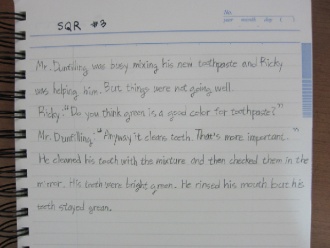 SQR #3
Mr. Dunfilling was busy mixing his new toothpaste and Ricky
was helping him. But things were not going well.
Ricky: "Do you think green is a good color for toothpaste?"
Mr. Dunfilling: "Anyway it cleans teeth. That's more important."
He cleaned his tooth with the mixture and then checked them in the
mirror. His teeth were bright green. He rinsed his mouth but his
teeth stayed green.